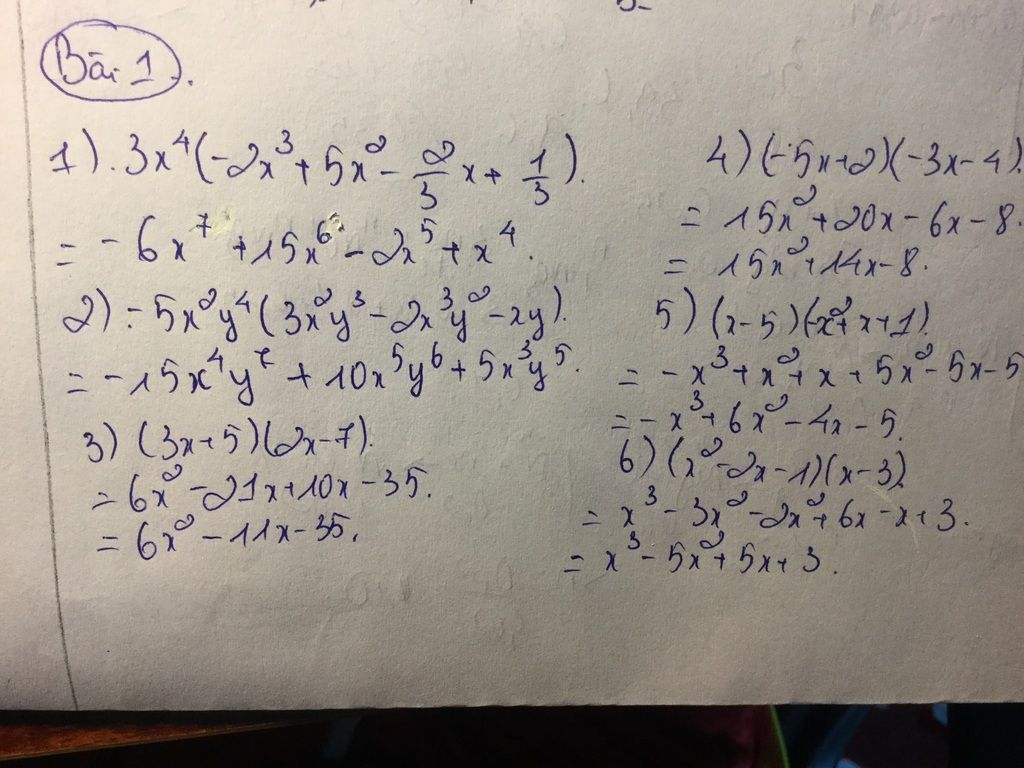 Bài 1.
1). 3x⁴(-2x³ + 5x² - 2/3 x + 1/3).
= - 6x⁷ + 15x⁶ - 2x⁵ + x⁴.
2) -5x²y⁴(3x²y³ - 2x³y² - xy).
= -15x⁴y⁷ + 10x⁵y⁶ + 5x³y⁵.
3) (3x+5)(2x-7).
= 6x² - 21x + 10x - 35.
= 6x² - 11x - 35.
4) (-5x+2)(-3x-4).
= 15x² + 20x - 6x - 8.
= 15x² + 14x - 8.
5) (x-5)(-x²+x+1).
= -x³ + x² + x + 5x² - 5x - 5
= -x³ + 6x² - 4x - 5.
6) (x² - 2x - 1)(x - 3)
= x³ - 3x² - 2x² + 6x - x + 3.
= x³ - 5x² + 5x + 3.